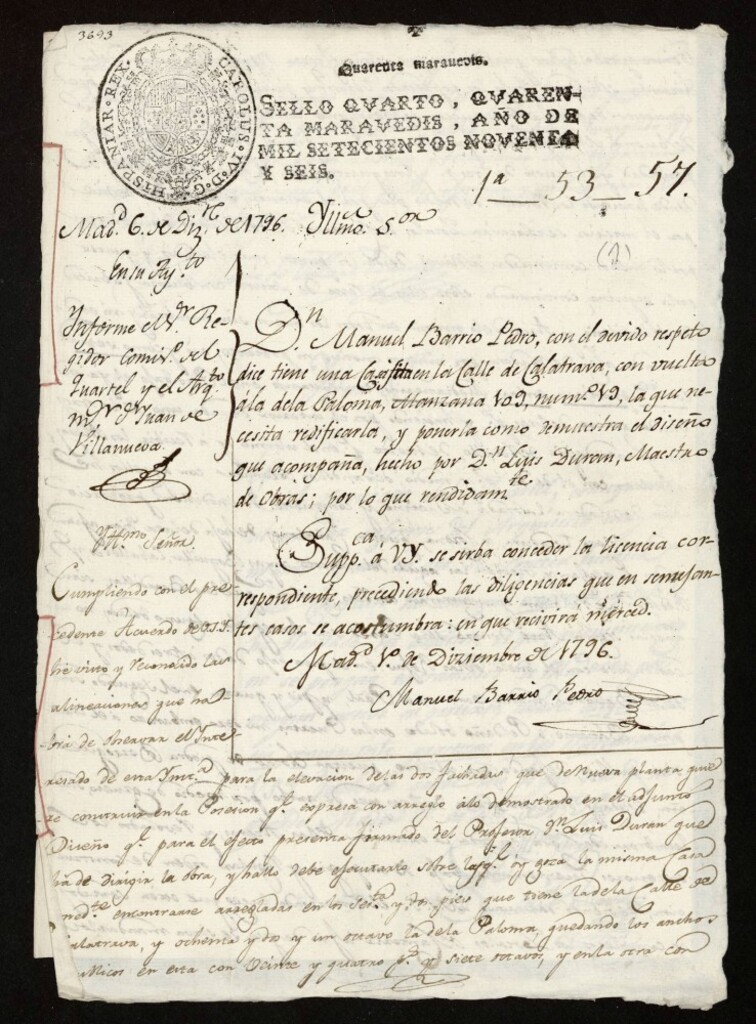 3693
HISPANIAR·REX· CAROLUS·IV·D·G·
Quarenta maravedis.
SELLO QVARTO, QVAREN-
TA MARAVEDIS, AÑO DE
MIL SETECIENTOS NOVENTA
Y SEIS.
1ª — 53 — 57.
(1)
Mad.d 6. de Diz.re de 1796.
En su Ay.to
Informe el Sr. Re-
gidor Comis.o del
Quartel y el Arq.to
m.r Dn Juan de
Villanueva.
Yllmo. S.or
D.n Manuel Barrio Pedro, con el devido respeto
dice tiene una Casa sita en la Calle de Calatrava, con vuelta
á la dela Paloma, Manzana 109, num.o 19, la que ne-
cesita redificarla, y ponerla como demuestra el diseño
que acompaña, hecho por D.n Luis Duran, Maestro
de Obras; por lo que rendidam.te
Supp.ca á VY. se sirba conceder la licencia cor-
respondiente, precediendo las diligencias que en semejan-
tes casos se acostumbra: en que recivirá merced.
Mad.d 1.o de Diziembre de 1796.
Manuel Barrio Pedro
Yllmo Señor.
Cumpliendo con el pre-
cedente Acuerdo de V.S.Y.
he visto y reconocido las
alineaciones que ha-
brá de observar el Inte-
resado de esta Inst.a para la elevacion delas dos fachadas que de Nueva planta quie
re construir en la Posesion q.e expresa con arreglo álo demostrado en el adjunto
Diseño q.e para el efecto presenta firmado del Profesor Dn Luis Duran que
ha de dirigir la obra, y hallo debe ejecutarlo sobre las q.e oy goza la misma Casa
med.te encontrarse arregladas en los seta y dos pies que tiene la dela Calle de
Calatrava, y ochenta y dos y un octavo la dela Paloma, quedando los anchos
en esta con Veinte y quatro p.s y siete octavos, y en la otra con